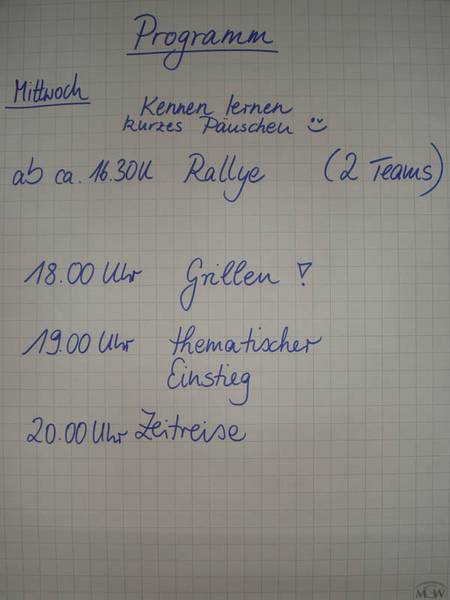 Programm
Mittwoch
Kennen lernen
kurzes Päuschen :)
ab ca. 16.30U Rallye (2 Teams)
18.00 Uhr Grillen !
19.00 Uhr thematischer
Einstieg
20.00 Uhr Zeitreise
MGW